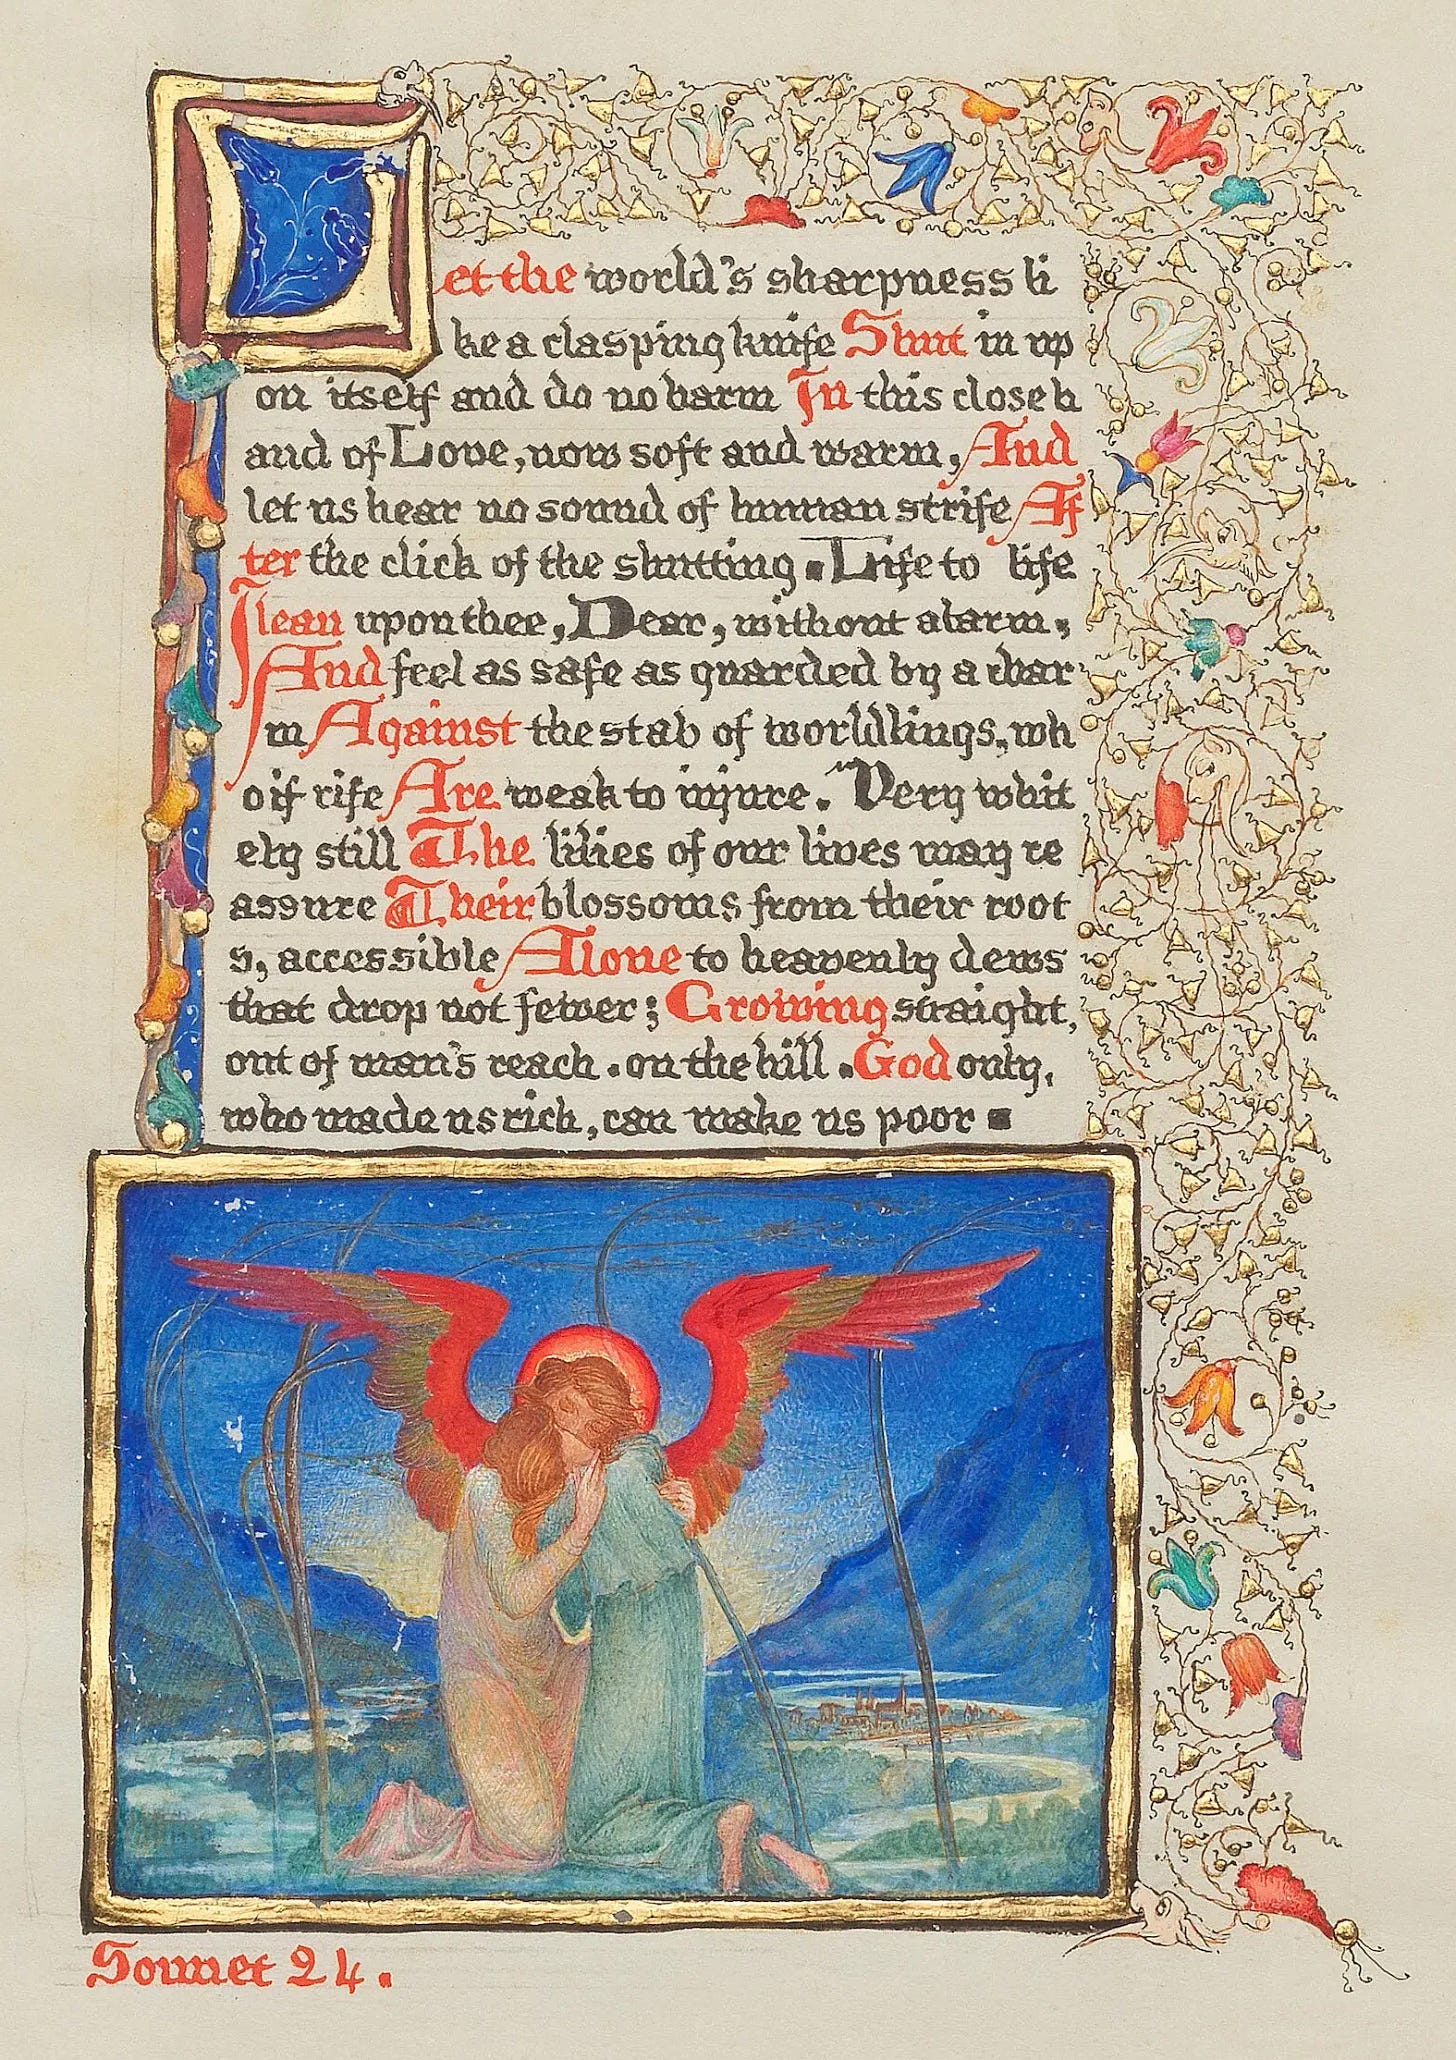 Let the world's sharpness li
ke a clasping knife Shut in up
on itself and do no harm In this close h
and of Love, now soft and warm, And
let us hear no sound of human strife Af
ter the click of the shutting. Life to life
I lean upon thee, Dear, without alarm,
And feel as safe as guarded by a char
m Against the stab of worldlings, wh
o if rife Are weak to injure. Very whit
ely still The lilies of our lives may re
assure Their blossoms from their root
s, accessible Alone to heavenly dews
that drop not fewer; Growing straight,
out of man's reach. on the hill. God only,
who made us rich, can make us poor.
Sonnet 24.